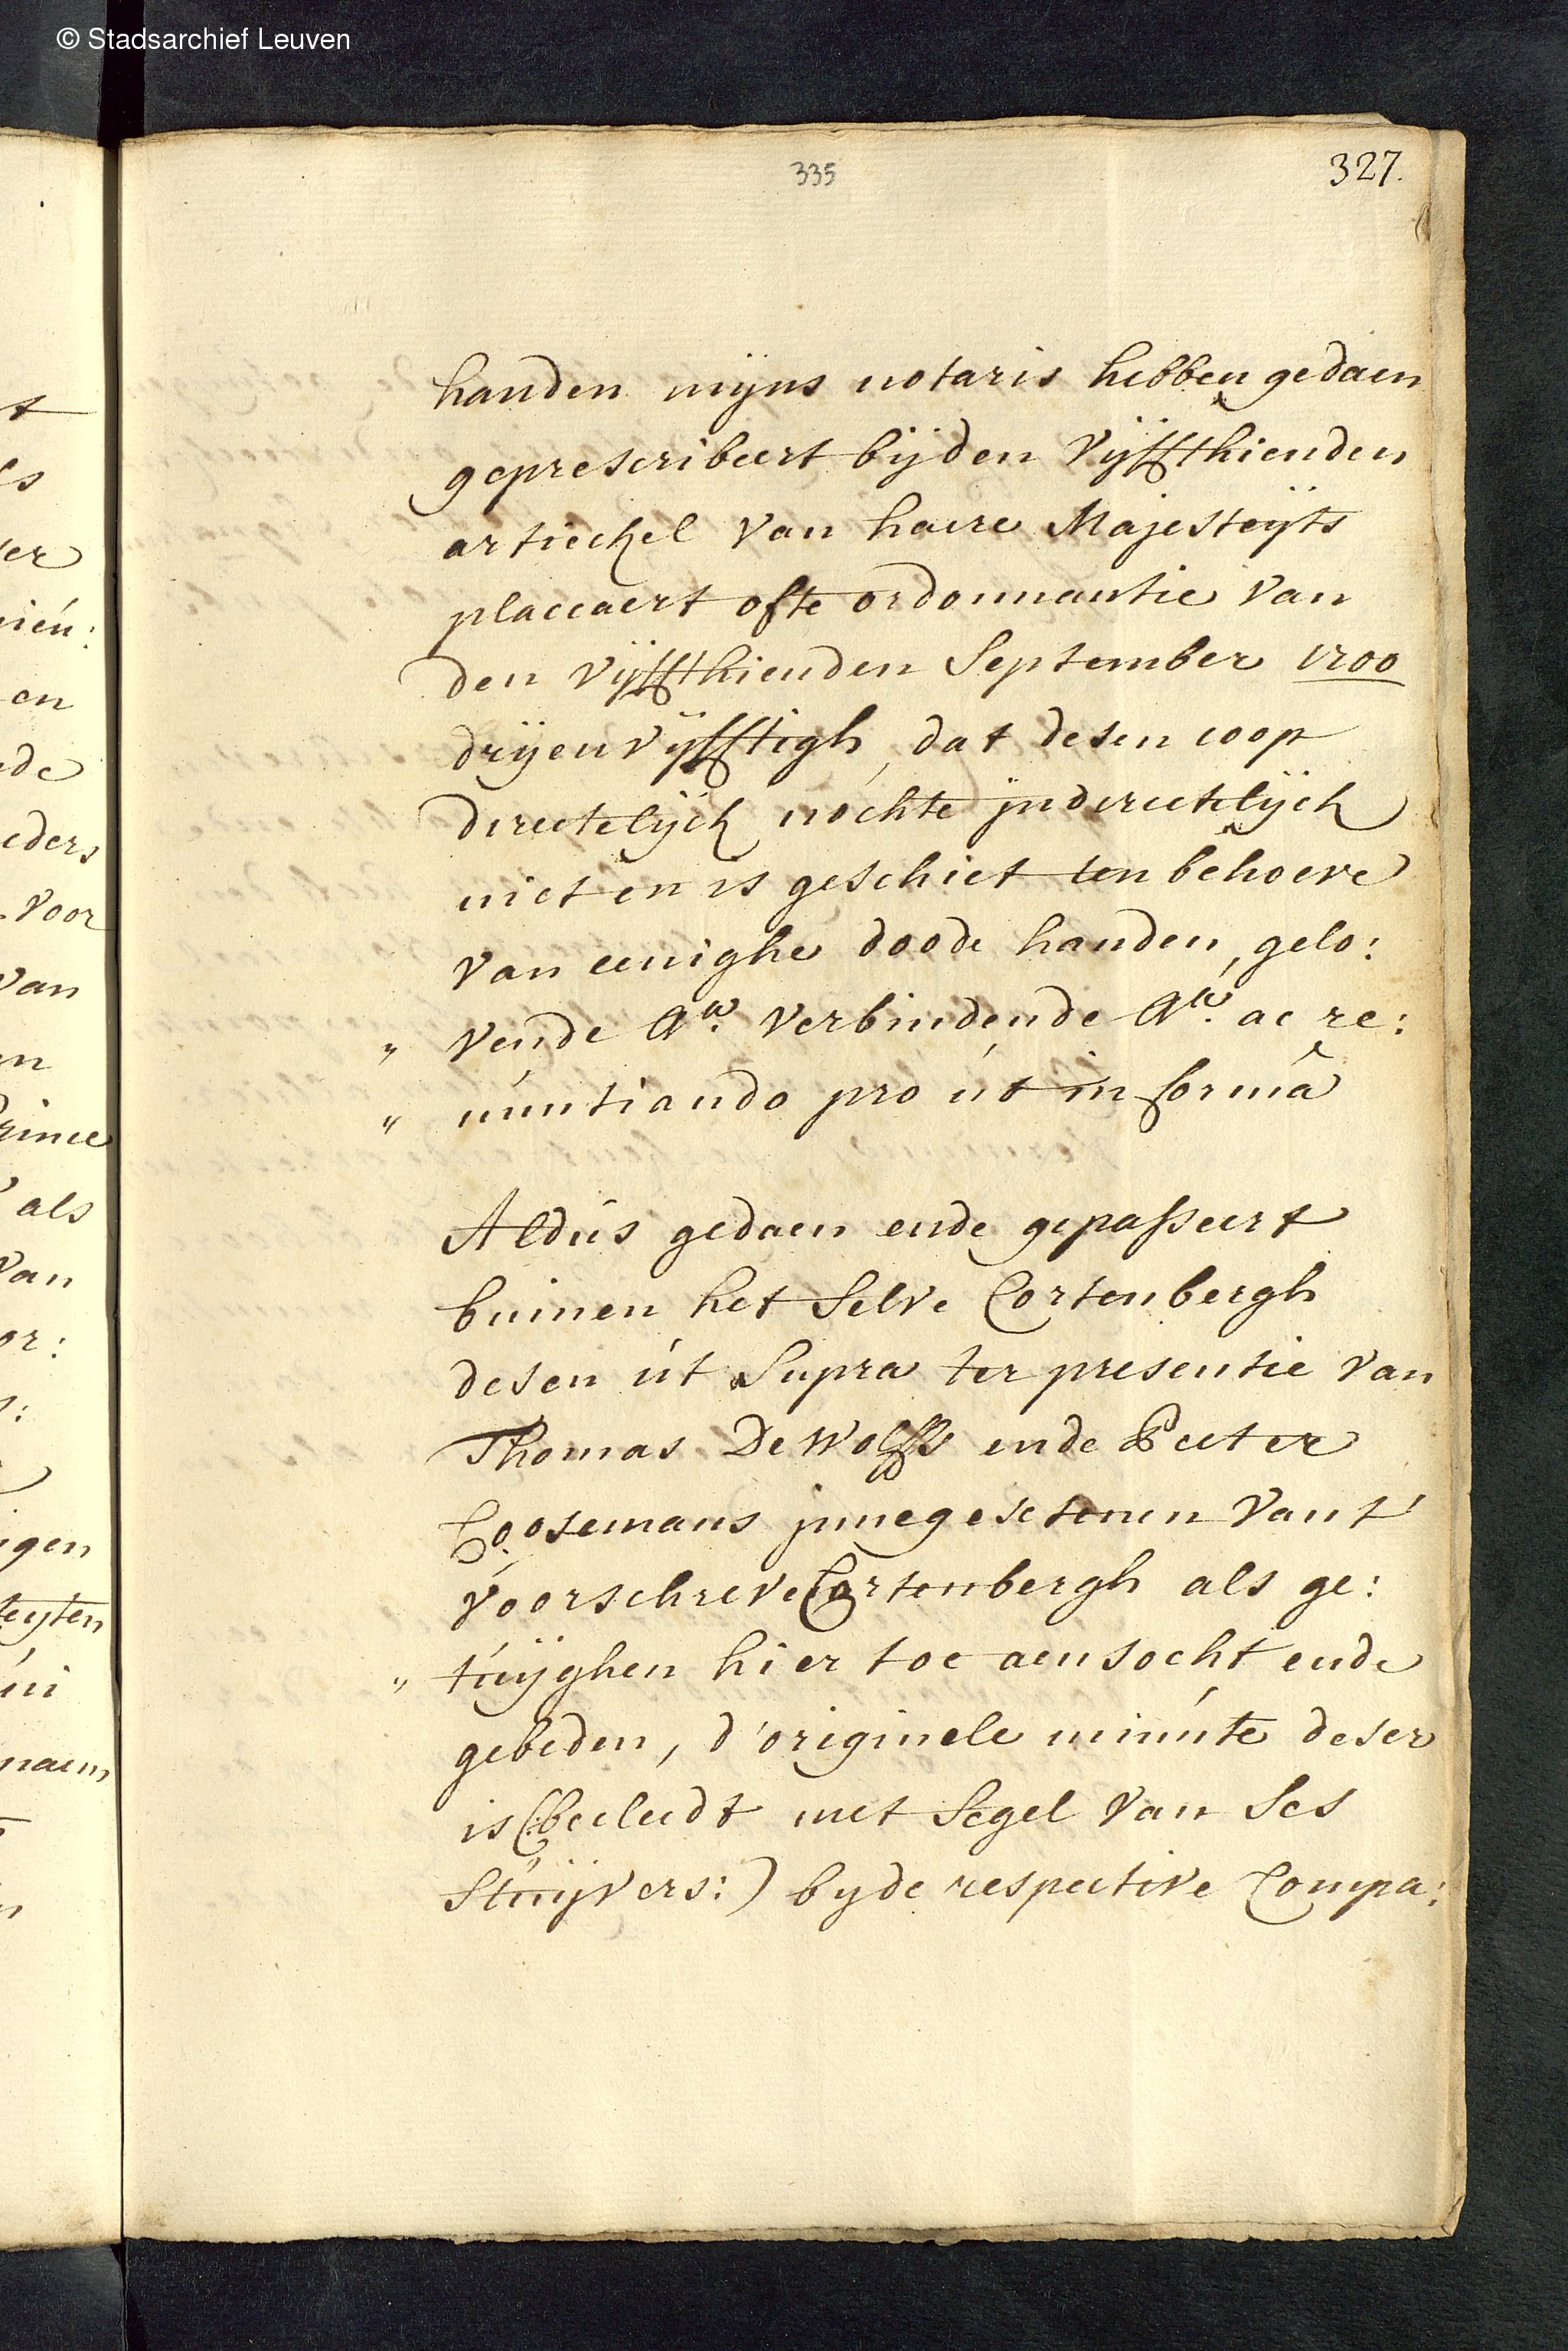 © Stadsarchief Leuven
335
327.
handen mijns notaris hebben gedaen
geprescribeert bijden vijffthienden
artieckel van haere Majesteijts
placcaert ofte ordonnantie van
den vijffthienden September 1700
drijenvijfftigh, dat desen coop
directelijck nochte jndirectelijck
niet en is geschiet ten behoeve
van eenighe doode handen, gelo:
" vende &a. verbindende &a. ac re:
" núntiando pro út in formâ
Aldús gedaen ende gepasseert
binnen het selve Cortenbergh
desen út supra ter presentie van
Thomas De Wolffs ende Peeter
Coosemans jnnegesetenen vant'
voorschreve Cortenbergh als ge:
" túijghen hier toe aensocht ende
gebeden, d'originele minúte deser
is (:becleedt met segel van ses
stúijvers:) bijde respective Compa:
t
ls
ier
nién:
en
ede
eders
voor
van
en
Prince
als
van
or:
s:
igen
teyten
úi
naem